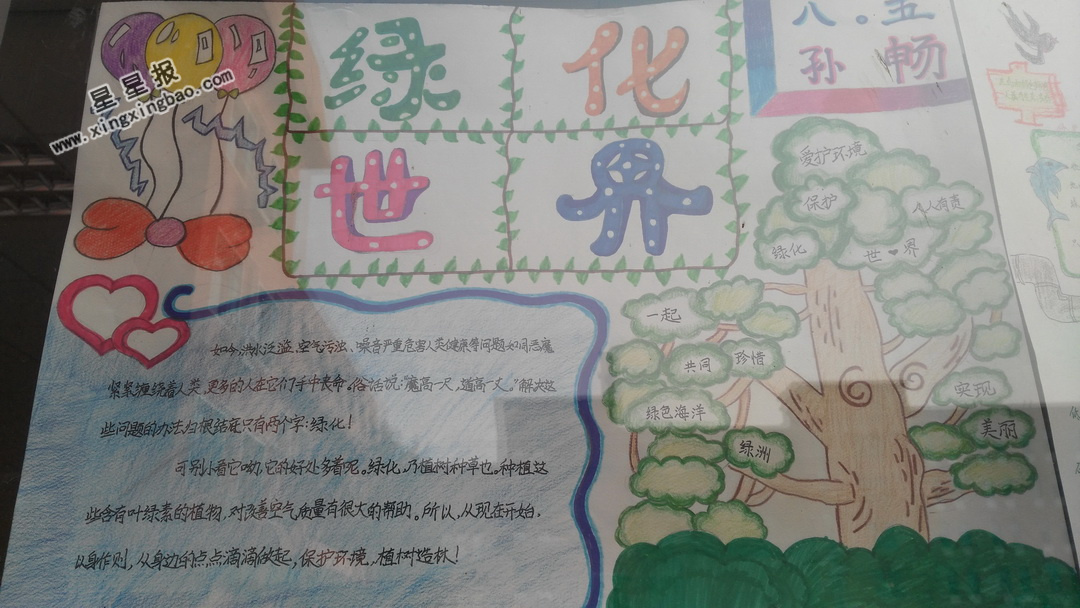 星星报
www.xingxingbao.com
绿化
世界
八.五
孙畅
如今,洪水泛滥、空气污浊、噪音严重危害人类健康等问题如同恶魔
紧紧缠绕着人类,更多的人在它们手中丧命。俗话说:“魔高一尺,道高一丈。”解决这
些问题的办法归根结底只有两个字:绿化!
可别小看它呦,它的好处多着呢。绿化,乃植树种草也。种植这
些含有叶绿素的植物,对改善空气质量有很大的帮助。所以,从现在开始,
以身作则,从身边的点点滴滴做起,保护环境,植树造林!
爱护环境
保护
人人有责
绿化
世❤界
一起
共同
珍惜
绿色海洋
绿洲
实现
美丽